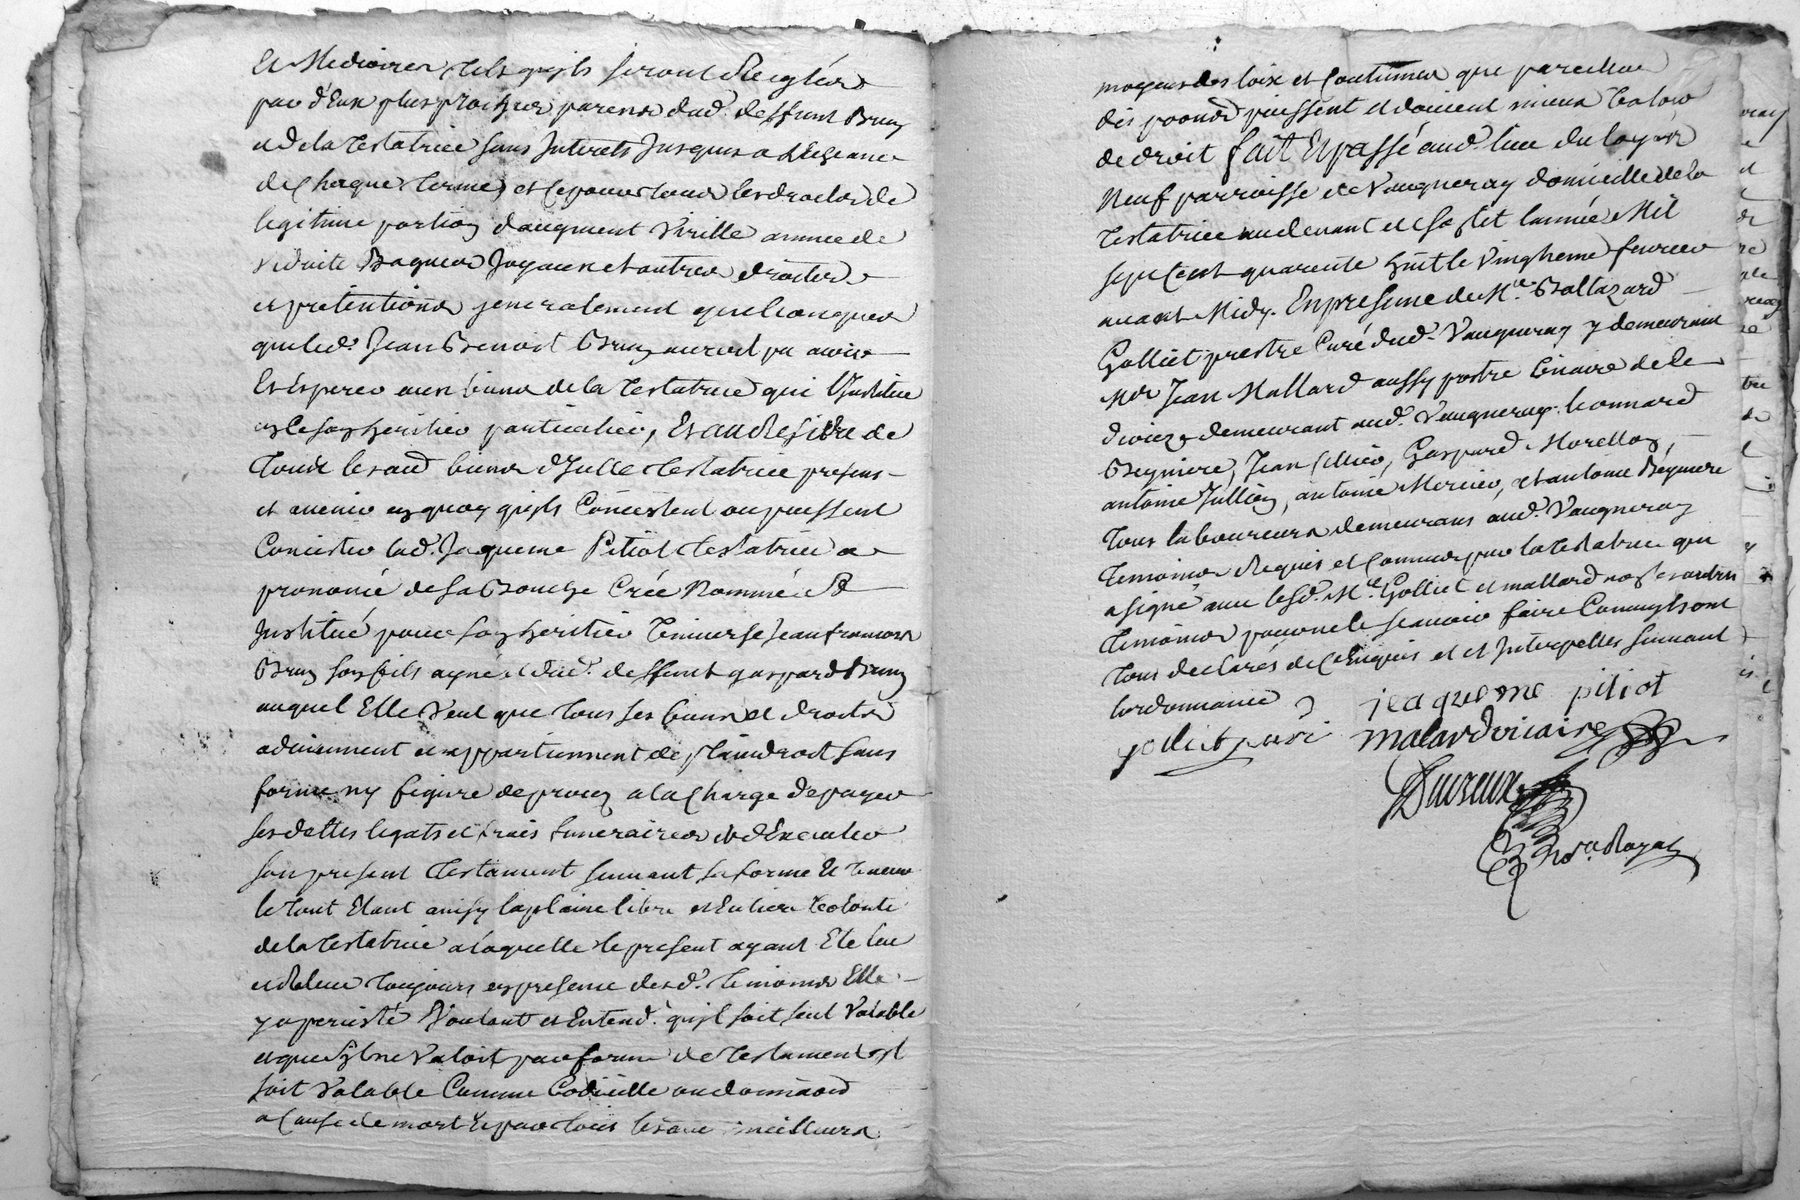 et Mediocres tels quils seront Reiglés
par d'Eux plus proches parens dud. deffunt Brun
et de la testatrice sans Interets Jusques a
de Chaque terme, et ce pour tous les droits de
legitime portion d'augment Virille année de
Viduité Bagues Joyaux et autres droits
et pretentions generalement quelconques
que led. Jean Benoist Brun auroit pu avoir
Et Esperer aux biens de la testatrice qui l'Institue
en ce son heritier particulier, Et au Residu de
Tous les aud biens d'Icelle testatrice presens
et avenir en quoy quils Concistent ou puissent
Concister lad. Jaqueme Pitiot testatrice a
prononcé de sa Bouche Créé Nommé Et
Institué pour son heritier Jean francois
Brun son fils ayné et dud. deffunt gaspard Brun
auquel Elle Veut que tous ses biens et droits
adviennent et appartiennent de plain droit sans
forme ny figure de procez a la Charge de payer
ses dettes legats et frais funeraires et d'Executer
son present testament suivant sa forme Et teneur
le tout Etant ainsy la plaine libre et Entiere Volonté
de la testatrice a laquelle le present ayant Eté leu
et Releu toujours en presence desd. temoins Elle
y a percisté Voulant et Entend. quil soit seul Valable
et que Sy ne Valoit par forme de testament il
soit Valable Comme Codicille ou donnaon
a Cause de mort Et par tous les aue meilleurs
moyens des loix et Coutumes que pareilles
dispoons puissent et doivent mieux Valoir
de droit fait Et passé aud. lieu du
Neuf parroisse de Vaugneray domicille de la
testatrice au devant et la Mil
sept Cent quarante huit le Vingtieme fevrier
avant Midy. En presence de Mre Baltazard
Golliet prestre Curé dud. Vaugneray y demeurant
Mer Jean Mallard aussy prestre Vicaire de ce
demeurant aud. Vaugneray. Leonnard
Begniere, Jean Gaspard Morellon,
antoine Jullien, antoine Mercier, et antoine Begniere
Tous laboureurs demeurans aud. Vaugneray
temoins Requis et Connus par la testatrice qui
a signé avec lesd. Mre Golliet et mallard non les autres
temoins pour ne le scavoir faire Comme ils ont
tous declarés de ce Enquis et Interpellés suivant
lordonnance
jeaqueme pitiot
golliet curé malard vicaire
Nore Royal